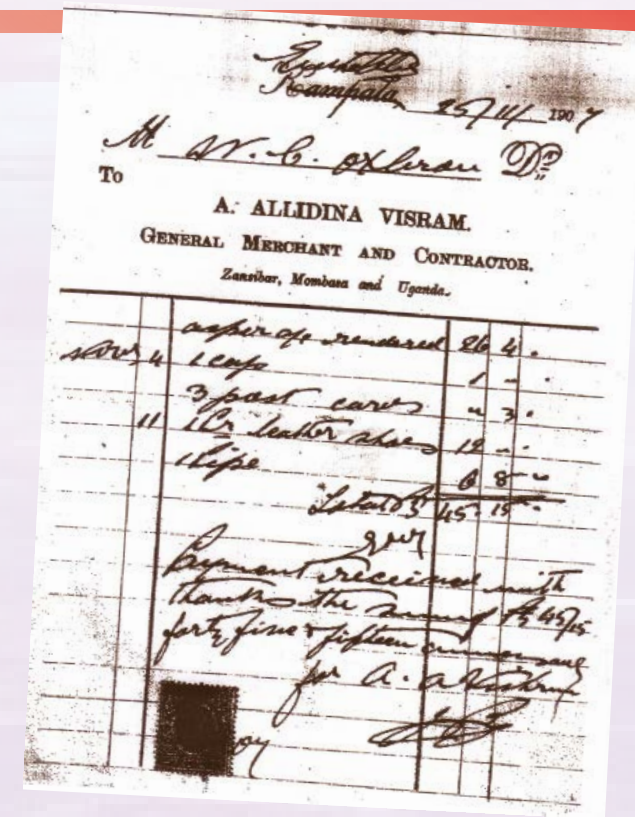 Entebbe
Kampala 25/11/1907
M W. C. Oxbrow Dr.
To
A. ALLIDINA VISRAM.
GENERAL MERCHANT AND CONTRACTOR.
Zanzibar, Mombasa and Uganda.
as per a/c rendered 26 4 "
Novr 4 1 cap 1 " "
3 post cards " 3 "
11 1 Pr leather shoes 12 " "
1 Pipe 6 8 "
Total Rs 45 15 "
Payment received with
thanks the sum of Rs 45/15
forty five & fifteen annas only
for A. A. Visram